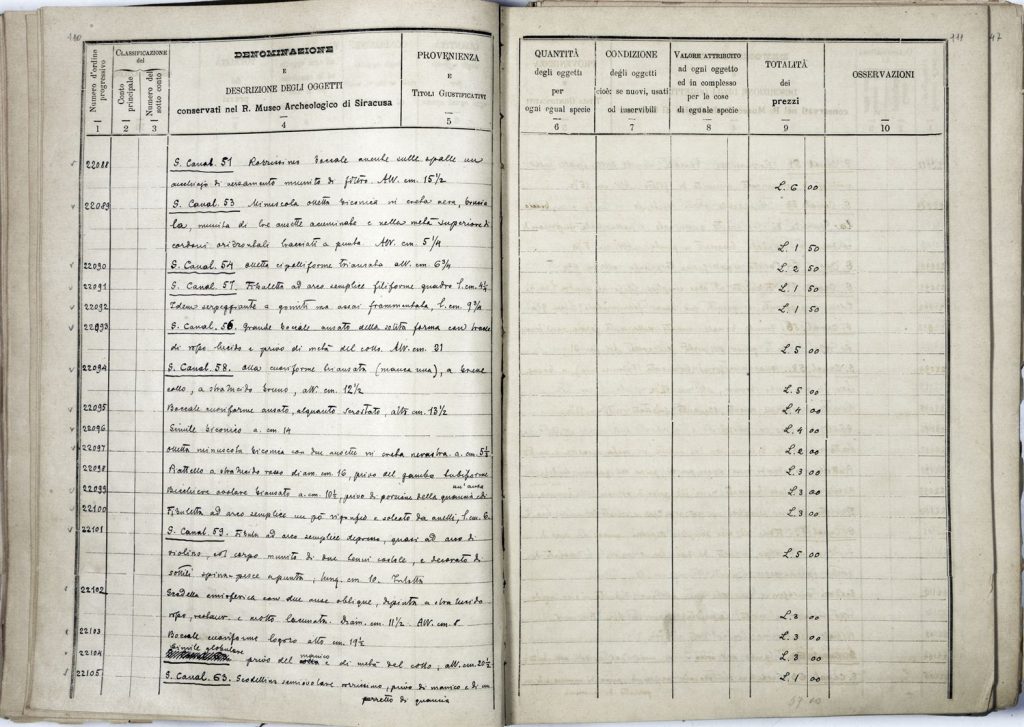 110
Numero d'ordine progressivo
CLASSIFICAZIONE del
Conto principale
Numero del sotto conto
DENOMINAZIONE
E
DESCRIZIONE DEGLI OGGETTI
conservati nel R. Museo Archeologico di Siracusa
PROVENIENZA
E
TITOLI GIUSTIFICATIVI
1 2 3 4 5
22088 S. Canal. 51 Rozzissimo boccale avente sulla spalla un
di versamento munito di filtro. Alt. cm. 15 1/2
22089 S. Canal. 53 Minuscola olletta biconica in creta nera,
munita di tre ansette acuminate e nella metà superiore di
cordoni orizzontali tracciati a punta. Alt. cm. 5 1/4
22090 S. Canal. 54 olletta cipolliforme triansata alt. cm. 6 3/4
22091 S. Canal. 57. Fibuletta ad arco semplice filiforme quadro l. cm. 4 1/2
22092 Idem serpeggiante a gomiti ma assai frammentata, l. cm. 9
22093 S. Canal. 56. Grande boccale ansato della solita forma con tracce
di rosso lucido e privo di metà del collo. Alt. cm. 21
22094 S. Canal. 58. olla cuoriforme biansata (manca una), a breve
collo, a stralucido bruno, alt. cm. 12 1/2
22095 Boccale cuoriforme ansato, alquanto scrostato, alt. cm. 13 1/2
22096 Simile biconico a. cm. 14
22097 olletta minuscola biconica con due ansette in creta nerastra. a. cm. 5 1/2
22098 Piattello a stralucido rosso diam. cm. 16, privo del gambo tubiforme
un'ansa
22099 Bicchiere ovolare biansato a. cm. 10 1/2, privo di porzione della guancia e di
22100 Fibuletta ad arco semplice un pò rigonfio e solcato da anelli, l. cm. 6
22101 S. Canal. 59. Fibula ad arco semplice depresso, quasi ad arco di
violino, col corpo munito di due tenui costole, e decorato di
sottili spina-pesce a punta, lung. cm. 10. Intatta
22102 Scodella emisferica con due anse oblique, dipinta a stralucido
rosso, restaur. e molto lacunata. Diam. cm. 11 1/2. Alt. cm. 8
22103 Boccale cuoriforme logoro alto cm. 19 1/2
Simile globulare manico
22104 privo del e di metà del collo, alt. cm. 20 1/2
22105 S. Canal. 63. Scodellina semiovolare rozzissima, priva di manico e di un
pezzetto di guancia
111
47
QUANTITÀ
degli oggetti
per
ogni egual specie
CONDIZIONE
degli oggetti
cioè: se nuovi, usati
od inservibili
VALORE ATTRIBUITO
ad ogni oggetto
ed in complesso
per le cose
di eguale specie
TOTALITÀ
dei
prezzi
OSSERVAZIONI
6 7 8 9 10
L. 6 00
L. 1 50
L. 2 50
L. 1 50
L. 1 50
L. 5 00
L. 5 00
L. 4 00
L. 4 00
L. 2 00
L. 3 00
L. 3 00
L. 3 00
L. 5 00
L. 3 00
L. 3 00
L. 3 00
L. 1 00